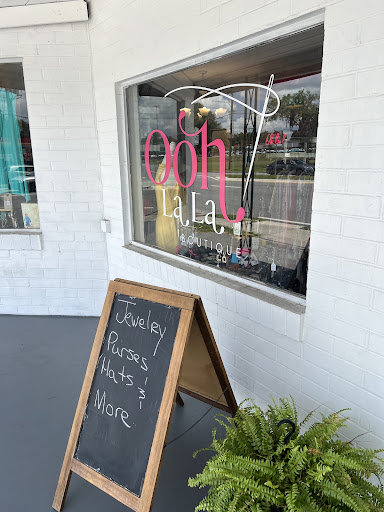 Ooh
La La
BOUTIQUE
CO
Jewelry
Purses
Hats &
More